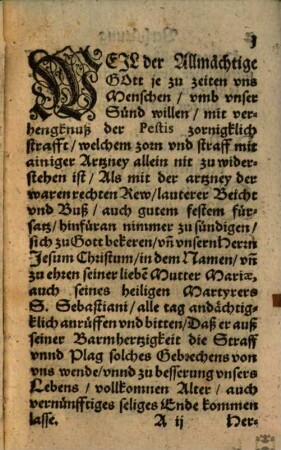 3
WEIL der Allmächtige
GOtt je zu zeiten vns
Menschen / vmb vnser
Sünd willen / mit ver-
hengknuß der Pestis zorniglich
strafft / welchem zorn vnd straff mit
ainiger Artzney allein nit zu wider-
stehen ist / Als mit der artzney der
waren rechten Rew / lauterer Beicht
vnd Buß / auch gutem festem für-
satz / hinfüran nimmer zu sündigen /
sich zu Gott bekeren / vñ vnsern Herrn
Jesum Christum / in dem Namen / vñ
zu ehren seiner liebẽ Mutter Mariæ,
auch seines heiligen Martyrers
S. Sebastiani / alle tag andächtig-
klich anrüffen vnd bitten / Daß er auß
seiner Barmhertzigkeit die Straff
vnnd Plag solches Gebrechens von
vns wende / vnnd zu besserung vnsers
Lebens / vollkomnen Alter / auch
vernünfftiges seliges Ende kommen
lasse. A ij Her-